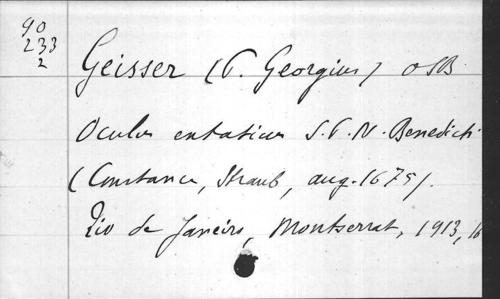 90
233
2
Geisser (P. Georgius) OSB
Oculus extaticus S.P.N. Benedicti
(Constance, Straub, aug. 1675).
Rio de Janeiro, Montserrat, 1913, 16